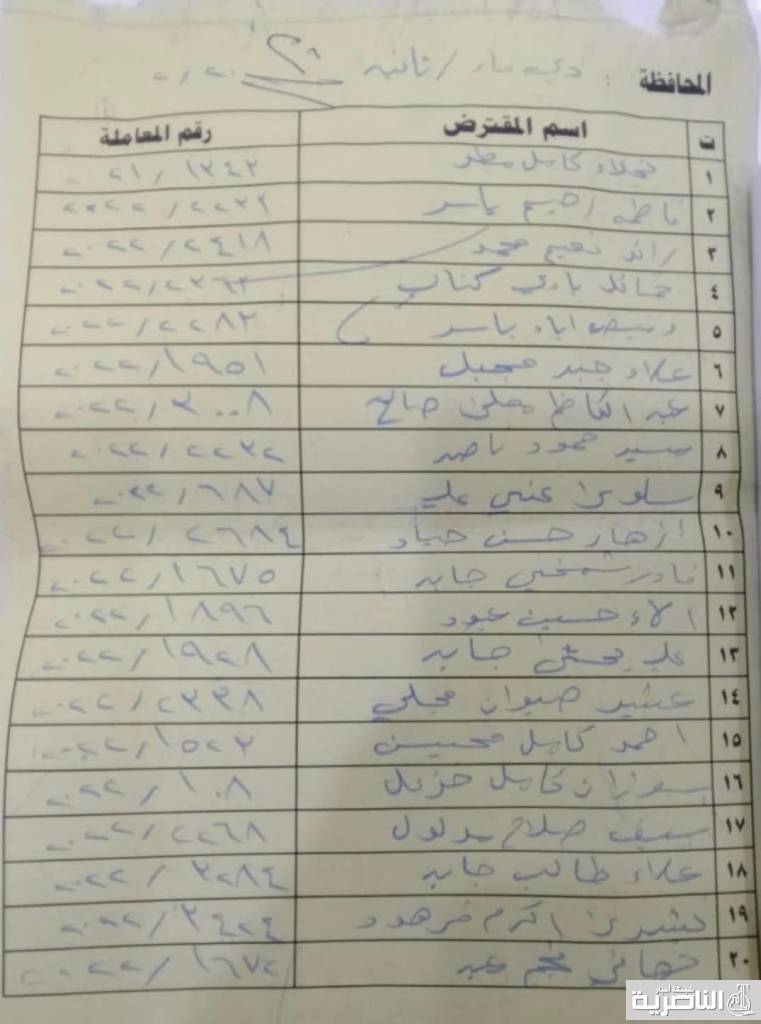 المحافظة : ذي قار / ثانية
ت اسم المقترض رقم المعاملة
١ نجلاء كامل مطر ١٣٤٢ / ٢١
٢ فاطمة رحيم ياسر ٢٢٣٩ / ٢٠٢٢
٣ رائد نعيم محمد ٢٤١٨ / ٢٠٢٢
٤ هادي ٢٣٦٣ / ٢٠٢٢
٥ اياد ياسر ٢٢٨٢ / ٢٠٢٢
٦ علاء جبر مجبل ١٩٥١ / ٢٠٢٢
٧ عبد الكاظم صالح ٣٠٠٨ / ٢٠٢٢
٨ حمود ناصر ٢٢٣٢ / ٢٠٢٢
٩ سلوى غني علي ٦٨٧ / ٢٠٢٢
١٠ ازهار حسن ٢٦٨٤ / ٢٠٢٢
١١ جابر ١٦٧٥ / ٢٠٢٢
١٢ الاء حسين عبود ١٨٩٦ / ٢٠٢٢
١٣ علي جابر ١٩٢٨ / ٢٠٢٢
١٤ ٢٣٣٨ / ٢٠٢٢
١٥ احمد كامل محيسن ١٥٢٣ / ٢٠٢٢
١٦ سوزان كامل خزعل ١٠٨ / ٢٠٢٢
١٧ سيف صلاح مدلول ٢٢٦٨ / ٢٠٢٢
١٨ علاء طالب جابر ٣٢٨٤ / ٢٠٢٢
١٩ بشرى اكرم فرهود ٣٤٢٤ / ٢٠٢٢
٢٠ تهاني نجم عبد ١٦٧٢ / ٢٠٢٢
شبكة أخبار
الناصرية